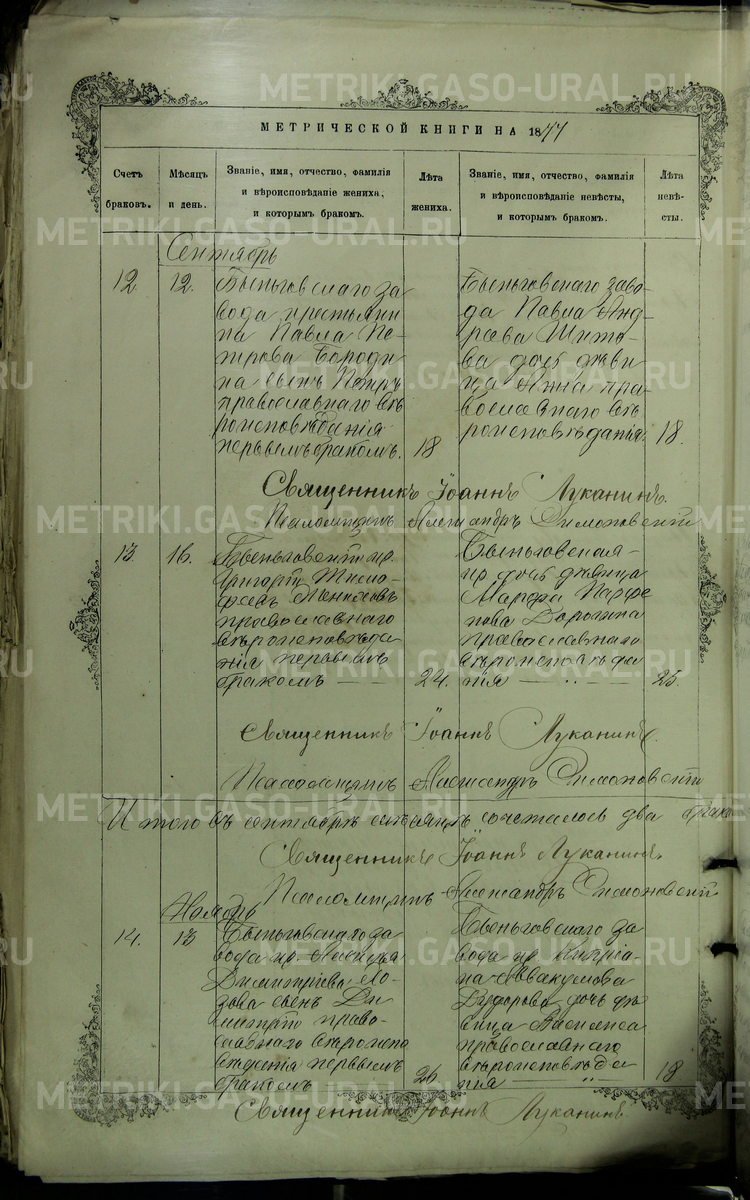 МЕТРИЧЕСКОЙ КНИГИ НА 1877
Счетъ браковъ.
Мѣсяцъ и день.
Званіе, имя, отчество, фамилія и вѣроисповѣданіе жениха, и которымъ бракомъ.
Лѣта жениха.
Званіе, имя, отчество, фамилія и вѣроисповѣданіе невѣсты, и которымъ бракомъ.
Лѣта невѣсты.
Сентябрь
12
12.
Быньговскаго за
вода крестьяни
на Павла Пе-
трова Бороди
на сынъ Петръ
православнаго вѣ
роисповѣданія
первымъ бракомъ.
18
Быньговскаго заво-
да Павла Анд
реева Шито
ва дочь дѣви
ца Анна пра-
вославнаго вѣ
роисповѣданія.
18.
Священникъ Іоаннъ Луканинъ.
Псаломщикъ Александръ
13.
16.
Быньговскій кр.
Григорій Тимо-
феевъ
православнаго
вѣроисповѣда
нія первымъ
бракомъ —
24.
Быньговская
кр. дочь дѣвица
Марфа Парфе
нова
православнаго
вѣроисповѣда
нія — „ —
25.
Священникъ Іоаннъ Луканинъ.
Псаломщикъ Александръ
Итого въ сентябрѣ мѣсяцѣ сочеталось два брака
Священникъ Іоаннъ Луканинъ.
Псаломщикъ Александръ
Ноябрь
14.
13
Быньговскаго за
вода кр.
Димитріева Ло-
зова сынъ Ди
митрій право-
славнаго вѣроиспо
вѣданія первымъ
бракомъ
26.
Быньговскаго за
вода кр. Кипріа-
на Аввакумова
дочь дѣ
вица Василиса
православнаго
вѣроисповѣда
нія — „
18
Священникъ Іоаннъ Луканинъ
METRIKI.GASO-URAL.RU